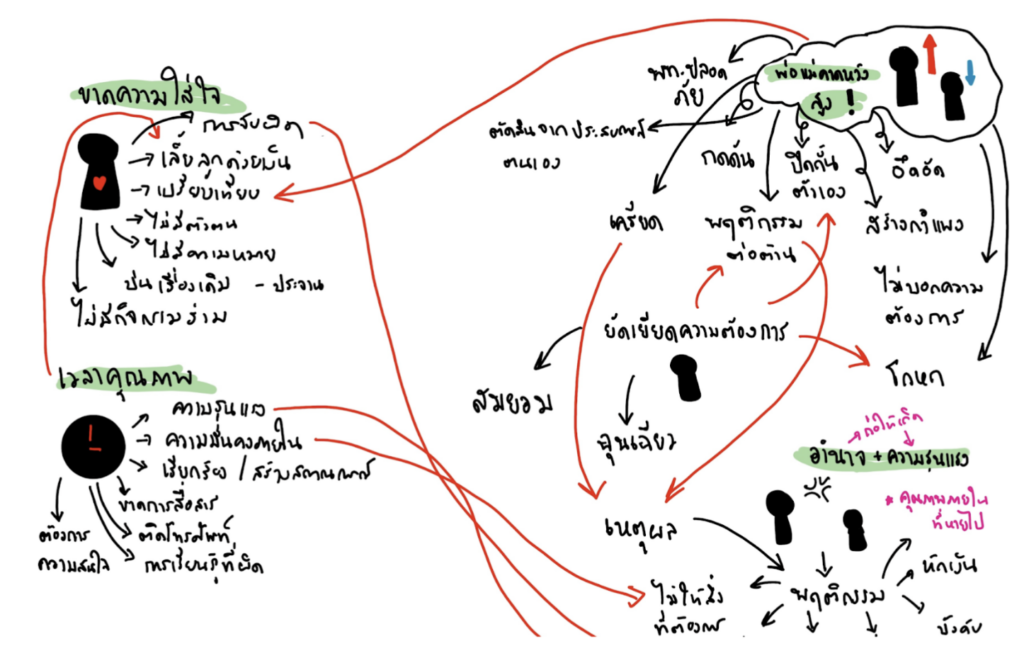 ขาดความใส่ใจ
การจับผิด
เลี้ยงลูกด้วยเงิน
เปรียบเทียบ
ไม่มีตัวตน
ไม่มีความหมาย
เรื่องเดิม - ประจาน
ไม่มีกิจกรรมร่วม
เวลาคุณภาพ
ความรุนแรง
ความมั่นคงภายใน
เรียกร้อง / สร้างสถานการณ์
ขาดการสื่อสาร
ติดโทรศัพท์
การเรียนรู้ที่ผิด
ต้องการ
ความสนใจ
พ่อแม่คาดหวัง
สูง!
พท.ปลอด
ภัย
ตัดสินจากประสบการณ์
ตนเอง
กดดัน
ปิดกั้น
ตัวเอง
อึดอัด
เครียด
พฤติกรรม
ต่อต้าน
สร้างกำแพง
ไม่บอกความ
ต้องการ
ยัดเยียดความต้องการ
โกหก
สมยอม
ฉุนเฉียว
ก่อให้เกิด
อำนาจ + ความรุนแรง
* คุณภาพภายใน
ที่หายไป
เหตุผล
ไม่ให้สิ่ง
ที่ต้องการ
พฤติกรรม
หักเงิน
บังคับ